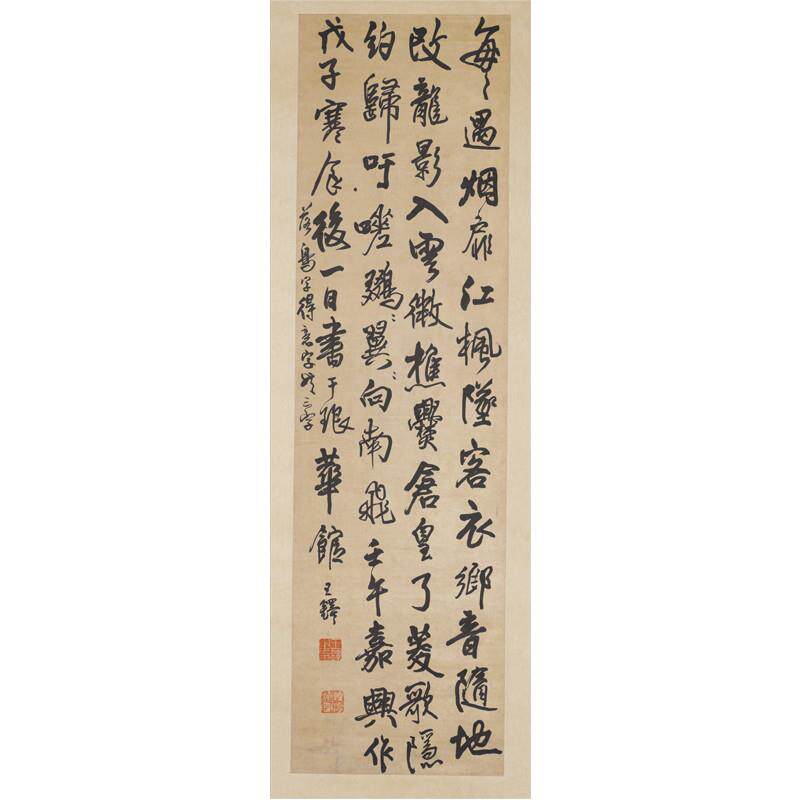 每〻遇烟霏江楓墜客衣鄉音隨地
改龍影入雲微樵爨倉皇了菱歌隱
約歸吁嗟翼〻向南飛壬午嘉興作
戊子寒食後一日書于琅華館王鐸
落鳥字得意字三字